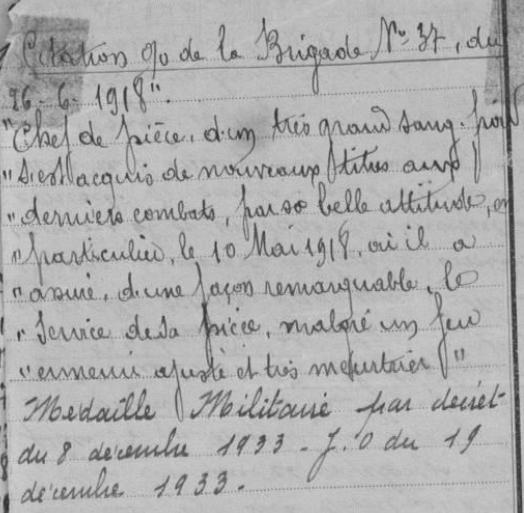 Citation o/o de la Brigade N° 37, du
26-6-1918".
"Chef de pièce, d'un très grand sang-froid
"s'est acquis de nouveaux titres aux
"derniers combats, par sa belle attitude, en
"particulier, le 10 Mai 1918, où il a
"assuré, d'une façon remarquable, le
"service de sa pièce, malgré un feu
"ennemi ajusté et très meurtrier"
Médaille Militaire par décret
du 8 décembre 1933 - J.O du 19
décembre 1933.